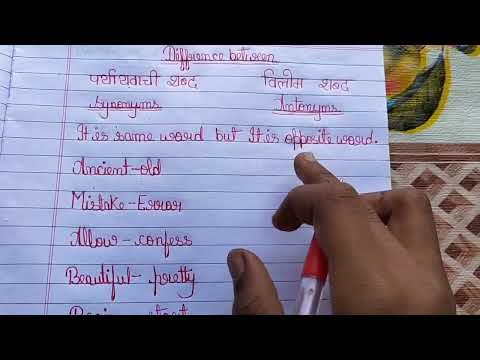 Diffrence between
पर्यायवाची शब्द विलोम शब्द
Synonyms Antonyms
It is same word but It is opposite word.
Ancient-old
Mistake-Error
Allow-confess
Beautiful-pretty